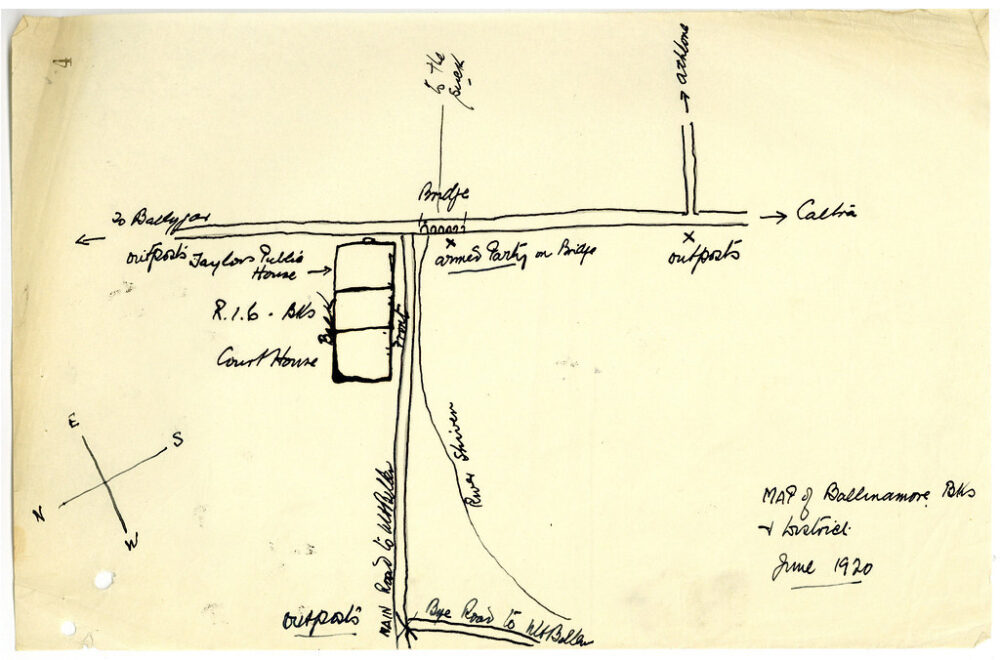 4
to the
Suck
→ Athlone
Bridge
To Ballygar
→ Caltra
outposts
Taylors Public
House →
armed Party on Bridge
outposts
R.I.C. Bks
Back
Front
Court House
E
S
N
W
River Shiven
MAIN Road to Mt Bellew
MAP of Ballinamore Bks
+ District.
June 1920
outposts
Bye Road to Mt Bellew